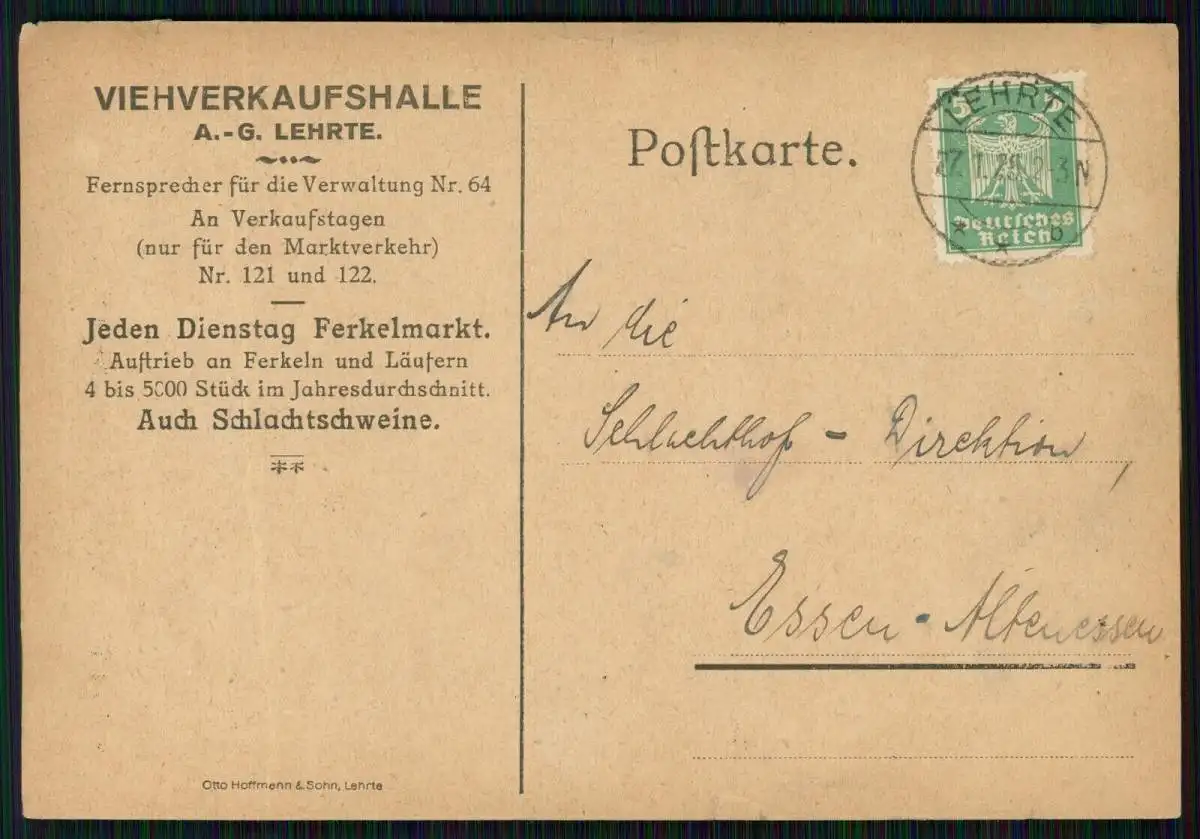 VIEHVERKAUFSHALLE
A.-G. LEHRTE.
Fernsprecher für die Verwaltung Nr. 64
An Verkaufstagen
(nur für den Marktverkehr)
Nr. 121 und 122.
Jeden Dienstag Ferkelmarkt.
Auftrieb an Ferkeln und Läufern
4 bis 5000 Stück im Jahresdurchschnitt.
Auch Schlachtschweine.
Otto Hoffmann & Sohn, Lehrte
Poſtkarte.
5
LEHRTE
2-3 N
* * b
Deutsches
Reich
An die
Schlachthof - Direktion,
Essen - Altenessen